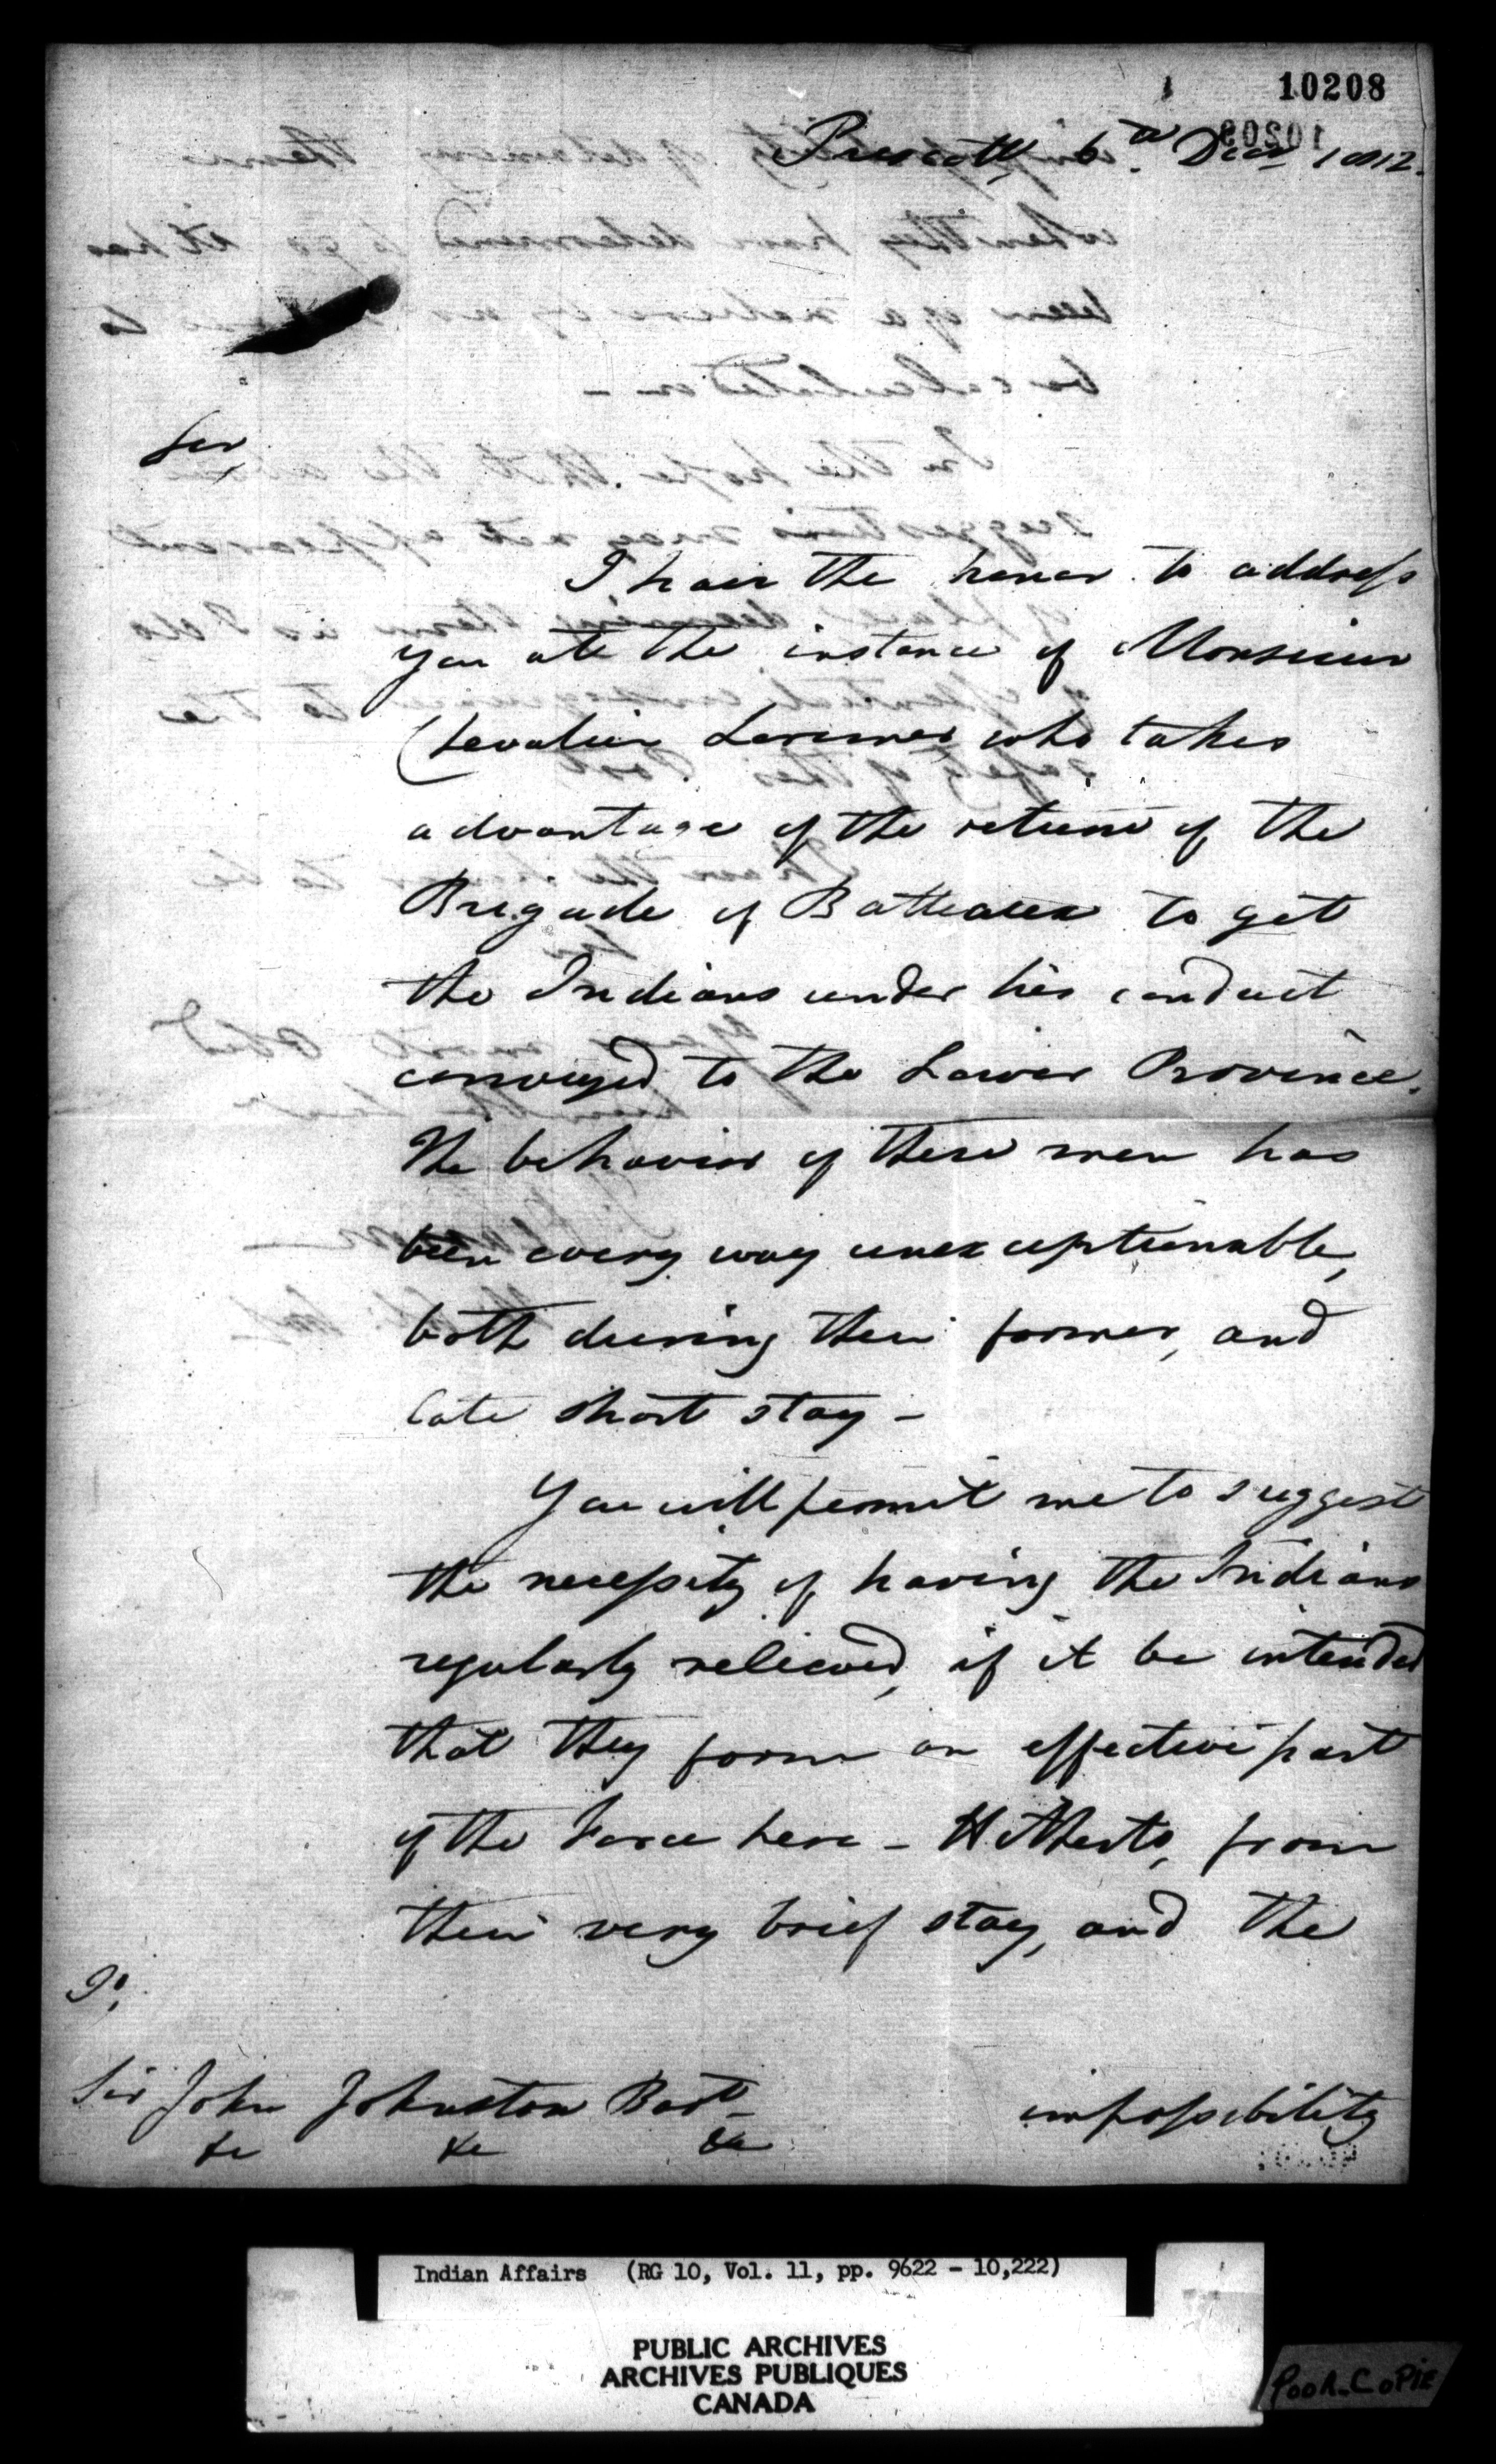 10208
Prescott 6th Decr 1812.
Sir
I have the honor to address
you at the instance of Monsieur
Chevalier Lorimer who takes
advantage of the return of the
Brigade of Batteaux to get
the Indians under his conduct
conveyed to the Lower Province.
The behavior of these men has
been every way unexceptionable,
both during their former, and
late short stay –
You will permit me to suggest
the necessity of having the Indians
regularly relieved, if it be intended
that they form an effective part
of the Force here – Hitherto, from
their very brief stay, and the
impossibility
Sir John Johnston Bart
&c &c &c
Indian Affairs (RG 10, Vol. 11, pp. 9622 - 10,222)
PUBLIC ARCHIVES
ARCHIVES PUBLIQUES
CANADA
POOR COPIE